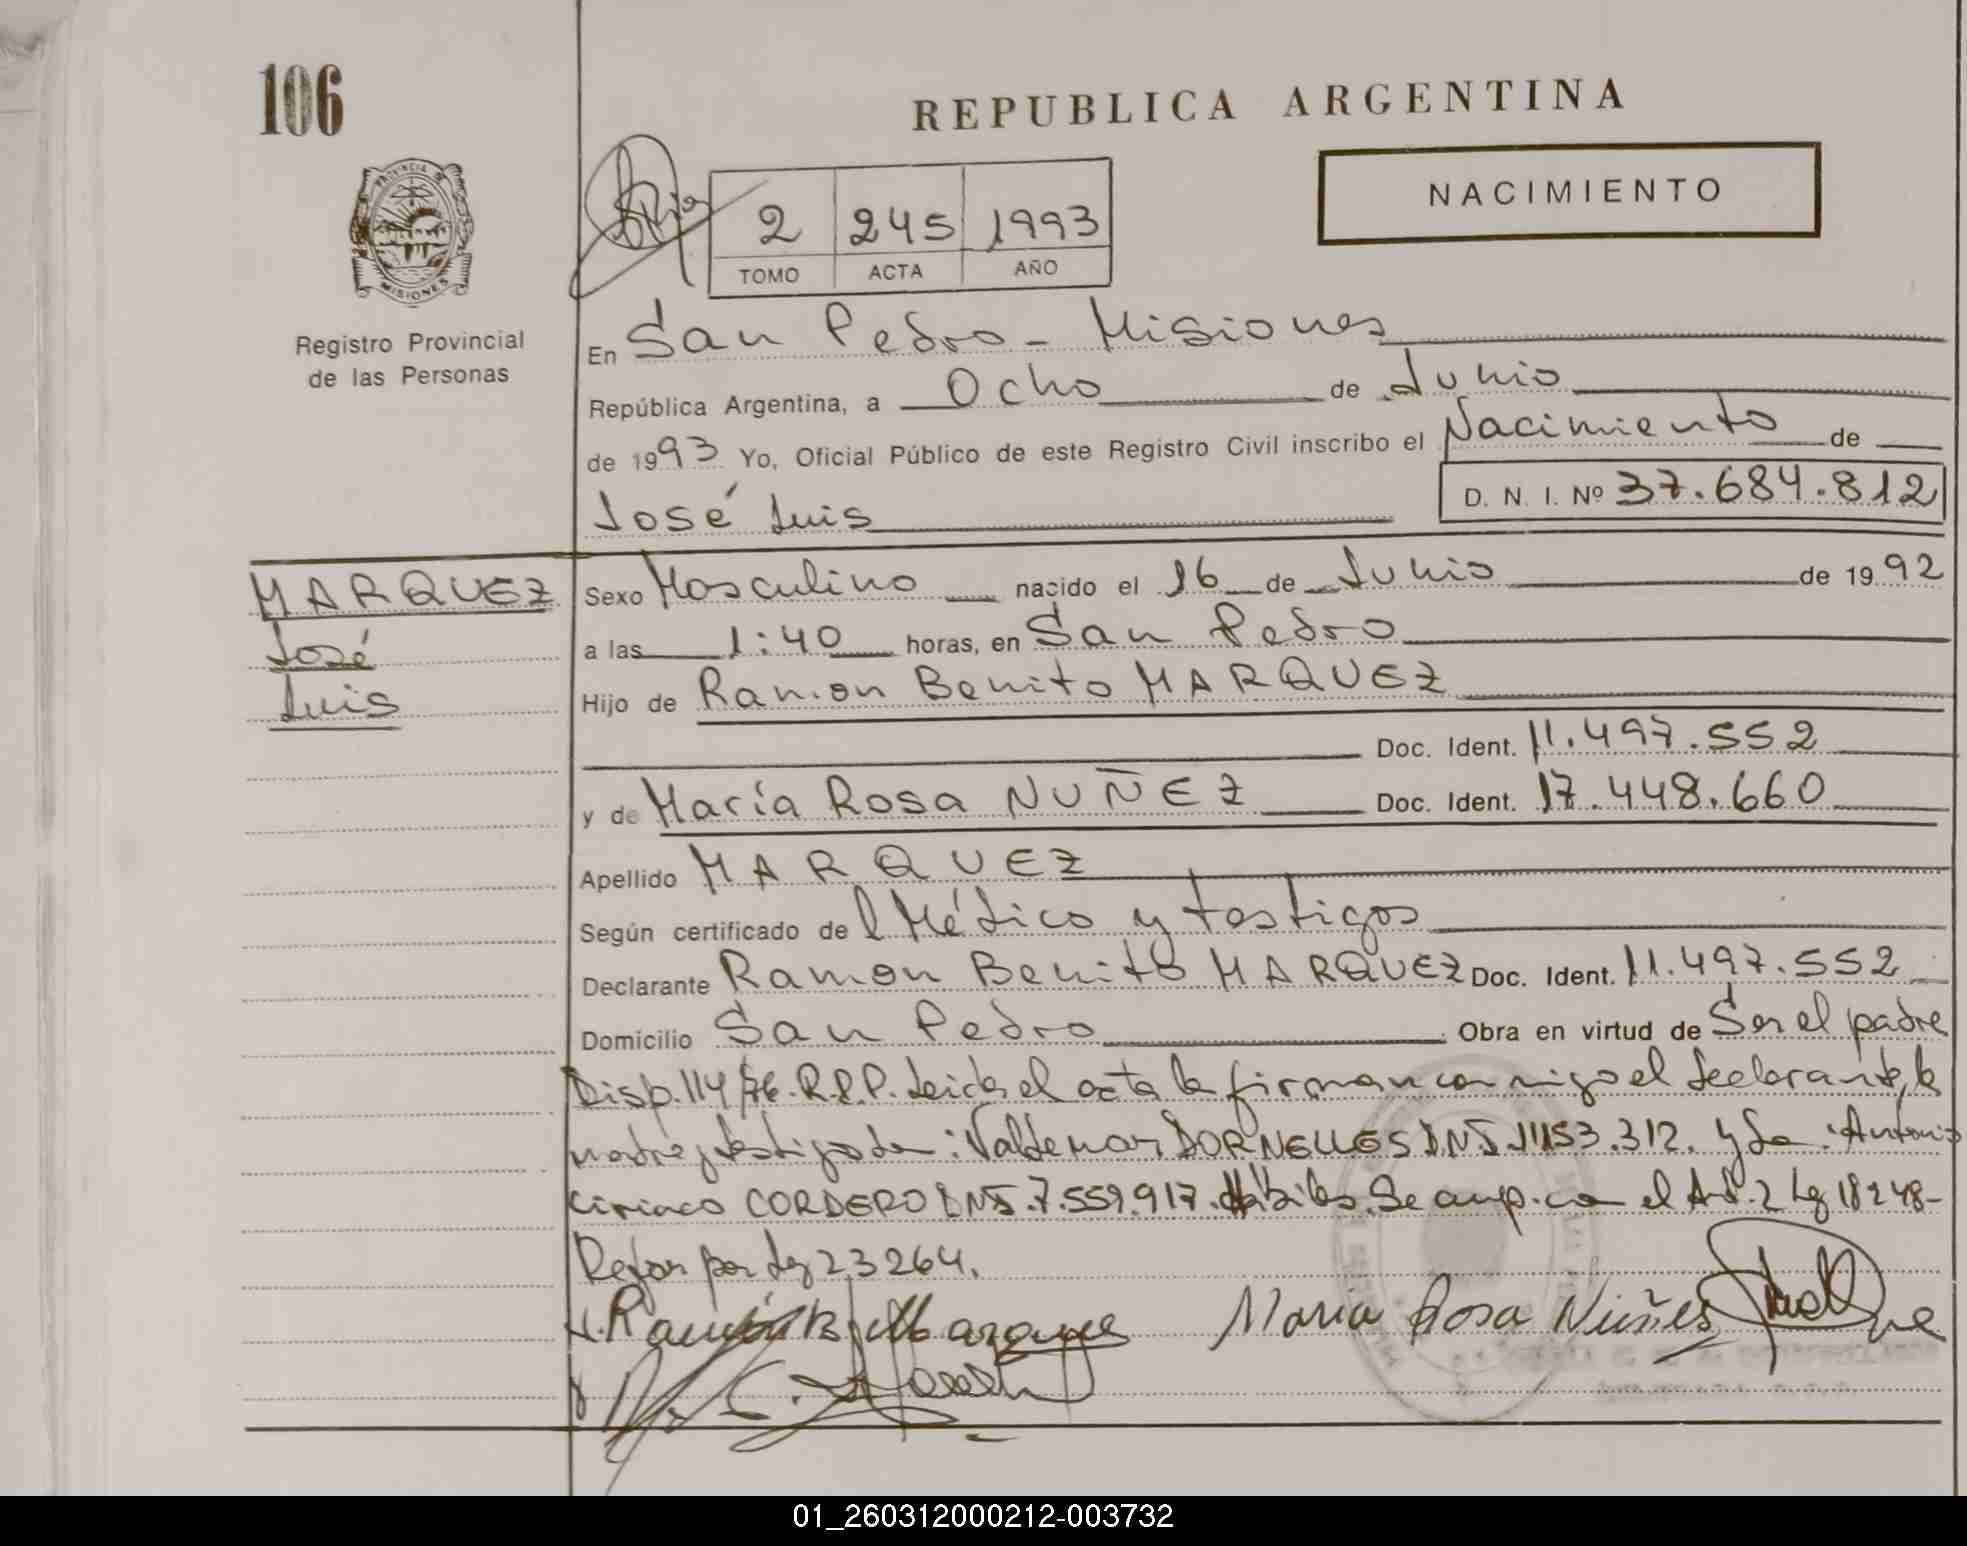 106
REPUBLICA ARGENTINA
NACIMIENTO
PROVINCIA DE
MISIONES
Registro Provincial
de las Personas
2 245 1993
TOMO ACTA AÑO
En San Pedro - Misiones
República Argentina, a Ocho de Junio
de 1993 Yo, Oficial Público de este Registro Civil inscribo el Nacimiento de
D. N. I. Nº 37.684.812
José Luis
MARQUEZ
José
Luis
Sexo Masculino nacido el 16 de Junio de 1992
a las 1:40 horas, en San Pedro
Hijo de Ramon Benito MARQUEZ
Doc. Ident. 11.497.552
y de María Rosa NUÑEZ Doc. Ident. 17.448.660
Apellido MARQUEZ
Según certificado de l Médico y testigos
Declarante Ramon Benito MARQUEZ Doc. Ident. 11.497.552
Domicilio San Pedro Obra en virtud de Ser el padre
Disp. 114/76. R.P.P. Leida el acta la firman conmigo el declarante, la
madre y testigos Valdemar DORNELLES DNI 11153.312. y Antonio
Ciriaco CORDERO DNI.7.559.917. Hábiles. Se cump. con el Art. 2 Ley 18248-
Refor por Ley 23264.
Ramón B Marquez
Maria Rosa Nuñes
01_260312000212-003732